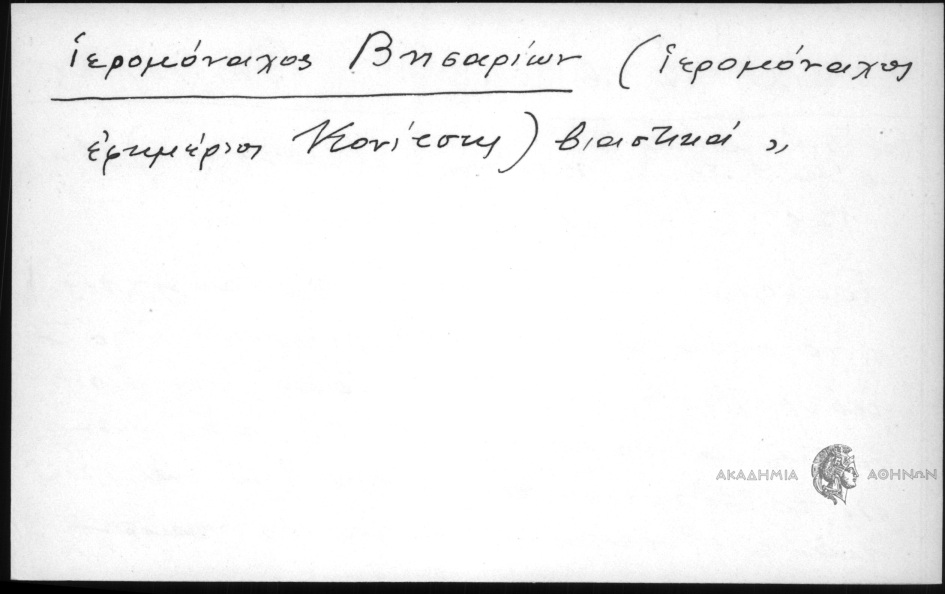 ἱερομόναχος Βησαρίων (ἱερομόναχος
ἐφημέριος Κονίτσης) βιαστικά »
ΑΚΑΔΗΜΙΑ ΑΘΗΝΩΝ